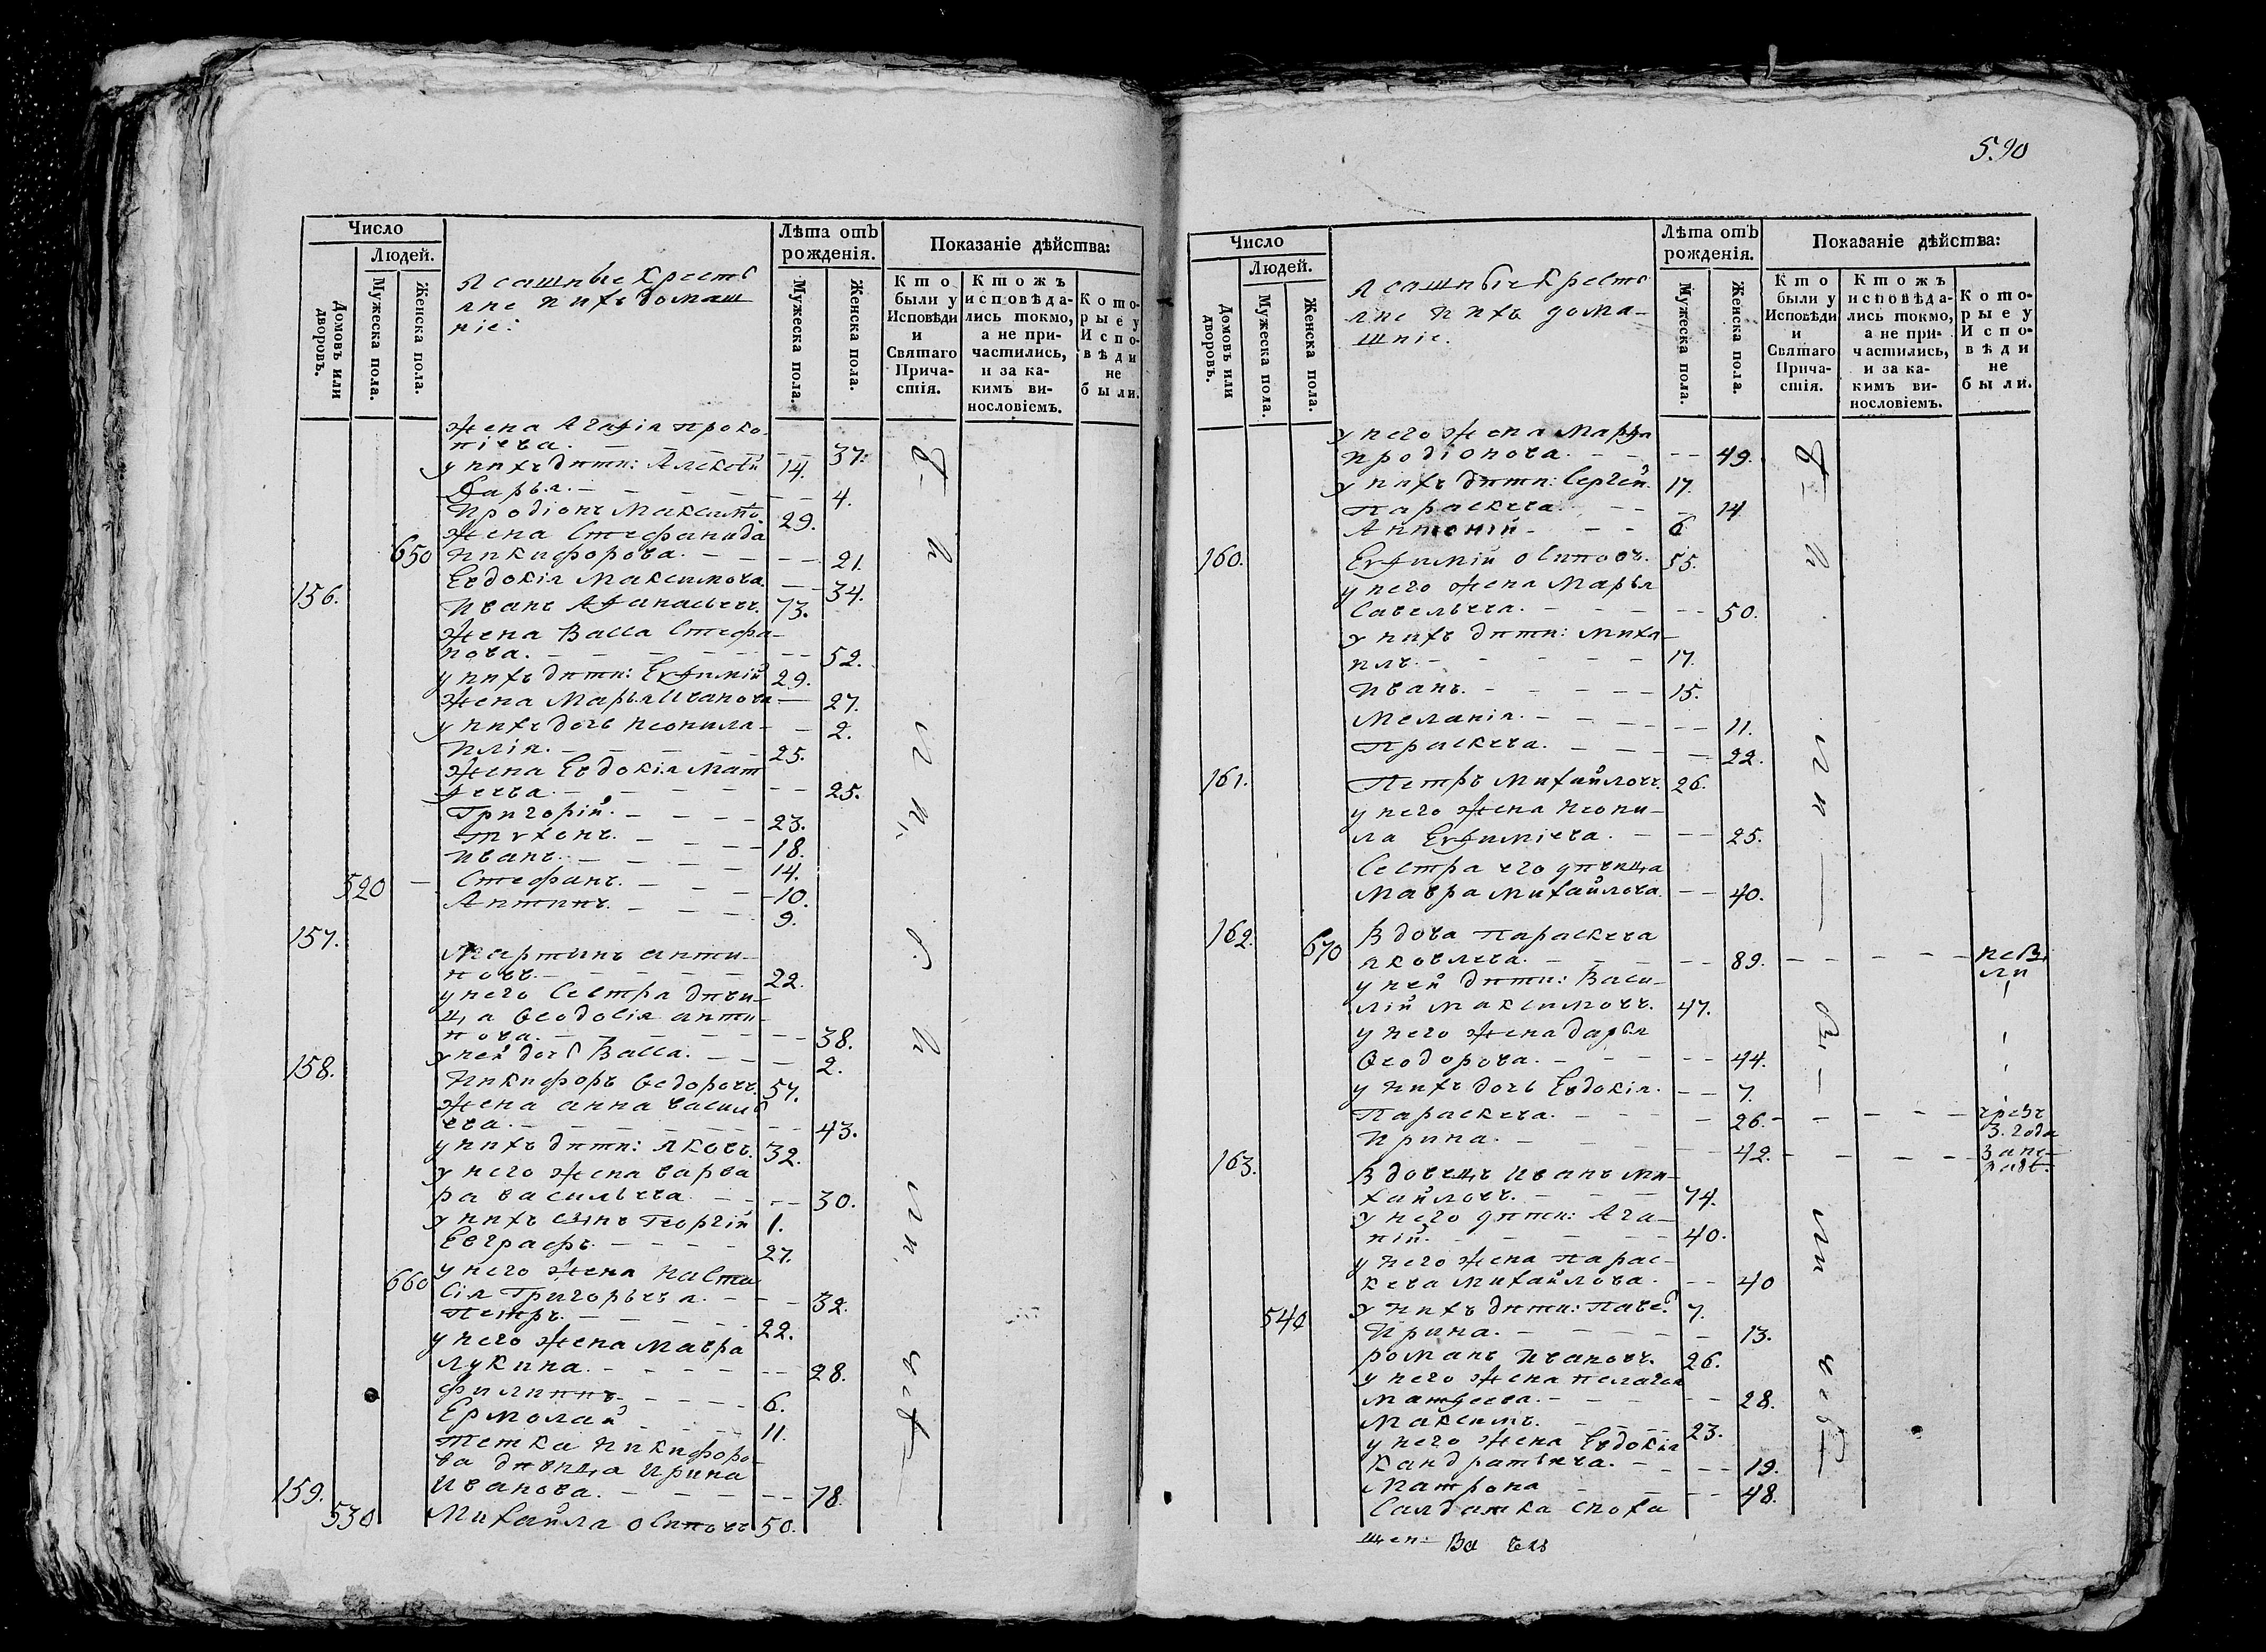 Число
Людей.
Домовъ или дворовъ.
Мужеска пола.
Женска пола.
Ясашные кресть
яне и ихъ домаш
ніе:
Лѣта отъ
рожденія.
Мужеска пола.
Женска пола.
Показаніе дѣйства:
Кто
были у
Исповѣди
и
Святаго
Прича-
стія.
Ктожъ
исповѣда-
лись токмо,
а не при-
частились,
и за ка-
кимъ ви-
нословіемъ.
Кото-
рые у
Испо-
вѣди
не
были.
жена Агафія проко
піева. — — 37.
у нихъ дѣти: Алексѣй 14.
Дарья. — — 4.
Иродіонъ Максимо. 29.
жена Стефанида
650 Никифорова. — — 21.
Евдокія Максимова — 34.
156. Иванъ Афанасьевъ. 73.
жена Васса Стефа-
нова. — — 52.
у нихъ дѣти: Ефимій 29.
жена Марья Иванова — 27.
у нихъ дочь Неонила — 2.
Илія. — — 25.
жена Евдокія Мат
феева. — — 25.
Григорій. — — 23.
Тихонъ. — — 18.
Иванъ. — — 14.
520 — Стефанъ. — — 10.
Антипъ. — — 9.
157.
Мартинъ анти-
повъ. — — 22.
у него сестра дѣви-
ца Ѳеодосія анти-
пова. — — 38.
у ней дочь Васса. — — 2.
158. Никифоръ Ѳедоровъ. 57.
жена анна василь
ева. — — 43.
у нихъ дѣти: Яковъ. 32.
у него жена варва
ра васильева. — — 30.
у нихъ сынъ Георгій 1.
Евграфъ. — — 27.
660 у него жена наста
сія Григорьева. — — 32.
Петръ. — — 22.
у него жена Мавра
лукина. — — 28.
филиппъ. — — 6.
Ермолай — — 11.
тетка Никифоро-
ва дѣвица Ирина
Иванова. — — 78.
159. 530 Михайла осиповъ 50.
590
Число
Людей.
Домовъ или дворовъ.
Мужеска пола.
Женска пола.
Ясашные кресть
яне и ихъ дома-
шніе.
Лѣта отъ
рожденія.
Мужеска пола.
Женска пола.
Показаніе дѣйства:
Кто
были у
Исповѣди
и
Святаго
Прича-
стія.
Ктожъ
исповѣда-
лись токмо,
а не при-
частились,
и за ка-
кимъ ви-
нословіемъ.
Кото-
рые у
Испо-
вѣди
не
были.
у него жена Марфа
Иродіонова. — — 49.
у нихъ дѣти: Сергей. 17.
Параскева. — — 14.
Антоній — — 6
160. Ефимій осиповъ. 55.
у него жена Марья
Савельева. — — 50.
у нихъ дѣти: Миха
илъ. — — 17.
Иванъ. — — 15.
Меланія. — — 11.
Праскева. — — 22.
161. Петръ Михайловъ. 26.
у него жена Неони-
ла Ефиміева. — — 25.
Сестра его дѣвица
Мавра Михайлова. — — 40.
162. 670 Вдова Параскева
яковлева. — — 89. — — — — не бы
ли
у ней дѣти: Васи-
лій Максимовъ. 47.
у него жена дарья
Ѳеодорова. — — 44.
у нихъ дочь Евдокія. — — 7.
Параскева. — — 26. — — — — чрезъ
3. года
Ирина. — — 42. — — — —
163. Вдовецъ Иванъ Ми-
хайловъ. — — 74.
у него дѣти: Ага-
пій. — — 40.
у него жена парас-
кева Михайлова. — — 40
540 у нихъ дѣти: паве. 7.
Ирина. — — 13.
романъ Ивановъ. 26.
у него жена пелагея
Матфеева. — — 28.
Максимъ. — — 23.
у него жена Евдокія
Кандратьева. — — 19.
Матрона — — 48.
Салдатка